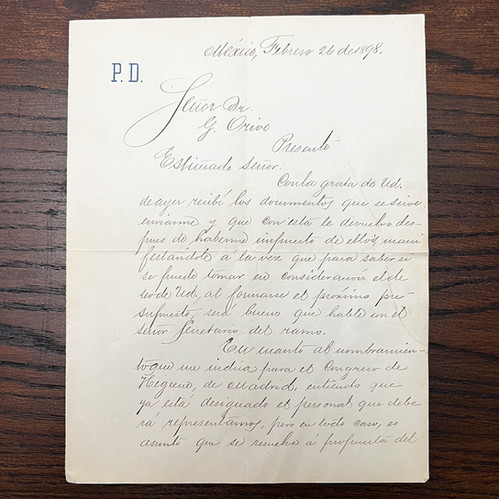 México, Febrero 26 de 1898.
P. D.
Señor Dr.
G. Orive
Presente
Estimado Señor.
Con la grata de Ud.
de ayer recibí los documentos que se sirve
enviarme y que con esta le devuelvo des-
pues de haberme impuesto de ellos, mani
festandole a la vez que para saber si
se puede tomar en consideración el de
seo de Ud, al formarse el próximo pre-
supuesto, será bueno que hable con el
señor Secretario del ramo.
En cuanto al nombramien-
to que me indica para el Congreso de
Higiene, de Madrid, entiendo que
ya está designado el personal que debe
ra representarnos, pero en todo caso, es
asunto que se resuelve á propuesta del